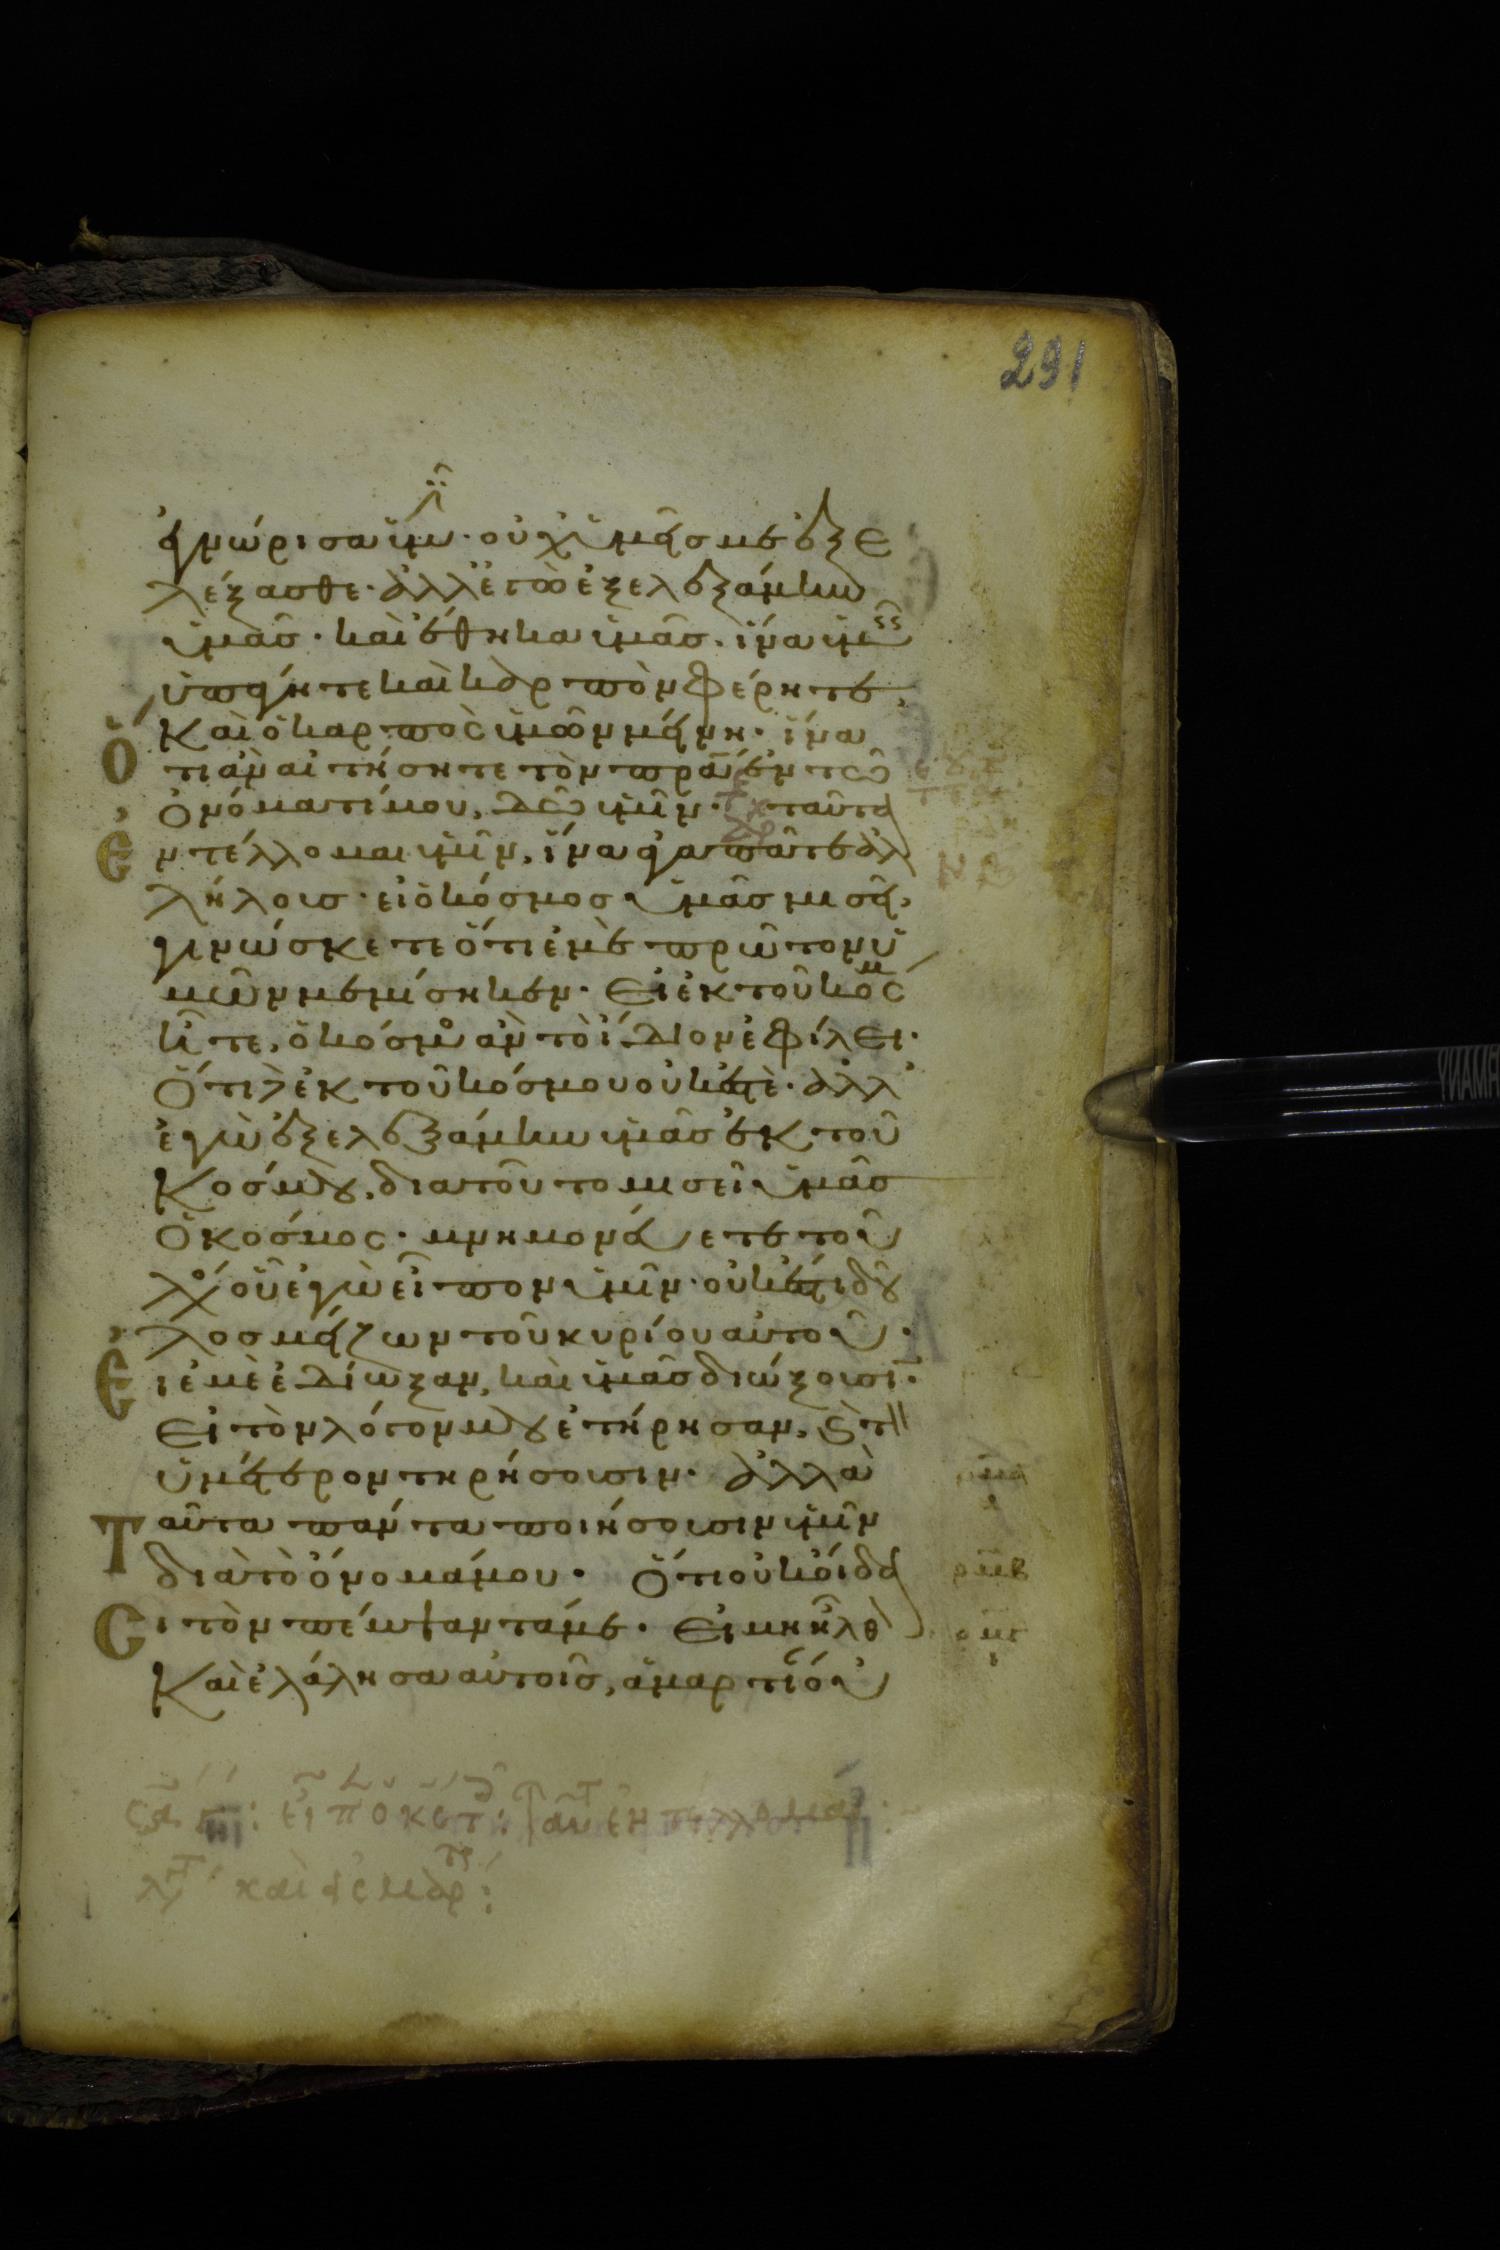 291
ἐγνώρισα ὑμῖν· οὐχ ὑμεῖς με ἐξε
λέξασθε· ἀλλ' ἐγὼ ἐξελεξάμην
ὑμᾶς· καὶ ἔθηκα ὑμᾶς· ἵνα ὑμεῖς
ὑπάγητε καὶ καρπὸν φέρητε,
Καὶ ὁ καρπὸς ὑμῶν μένη· ἵνα
Ὅ τι ἂν αἰτήσητε τὸν πρα ἐν τῶ
ὀνόματί μου, δῶ ὑμῖν· ταῦτα
Ἐντέλλομαι ὑμῖν, ἵνα ἀγαπᾶτε ἀλ
λήλοις· εἰ ὁ κόσμος ὑμᾶς μισεῖ,
γινώσκετε ὅτι ἐμὲ πρῶτον ὑ
μῶν μεμίσηκεν· Εἰ ἐκ τοῦ κόσμου
ἦτε, ὁ κόσμος ἂν τὸ ἴδιον ἐφίλει·
Ὅτι δὲ ἐκ τοῦ κόσμου οὐκ ἐστὲ· ἀλλ'
ἐγὼ ἐξελεξάμην ὑμᾶς ἐκ τοῦ
Κόσμου, διατοῦτο μισεῖ ὑμᾶς
Ὁ κόσμος· μνημονεύετε τοῦ
λόγου οὗ ἐγὼ εἶπον ὑμῖν· οὐκ ἔστι δοῦ
λος μείζων τοῦ κυρίου αὐτοῦ·
Εἰ ἐμὲ ἐδίωξαν, καὶ ὑμᾶς διώξουσι·
Εἰ τὸν λόγον μου ἐτήρησαν, καὶ τὸν
ὑμέτερον τηρήσουσιν· ἀλλὰ
Ταῦτα πάντα ποιήσουσιν ὑμῖν
διὰ τὸ ὄνομά μου· Ὅτι οὐκ οἴδα
Σι τὸν πέμψαντά με· Εἰ μὴ ἦλθον
Καὶ ἐλάλησα αὐτοῖς, ἁμαρτίαν οὐ